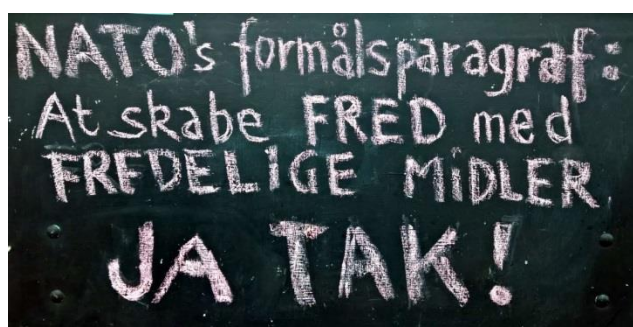 NATO's formålsparagraf:
At skabe FRED med
FREDELIGE MiDLER
JA TAK!